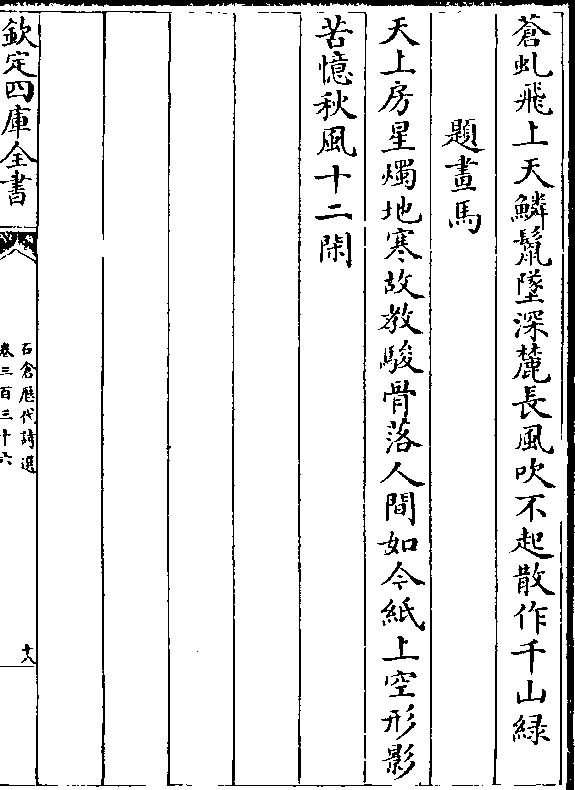 蒼虬飛上天鱗鬛墜深麓長風吹不起散作千山緑
題畫馬
天上房星燭地寒故教駿骨落人間如今紙上空形影
苦憶秋風十二閑
欽定四庫全書
石倉歴代詩選
卷三百三十六
十八